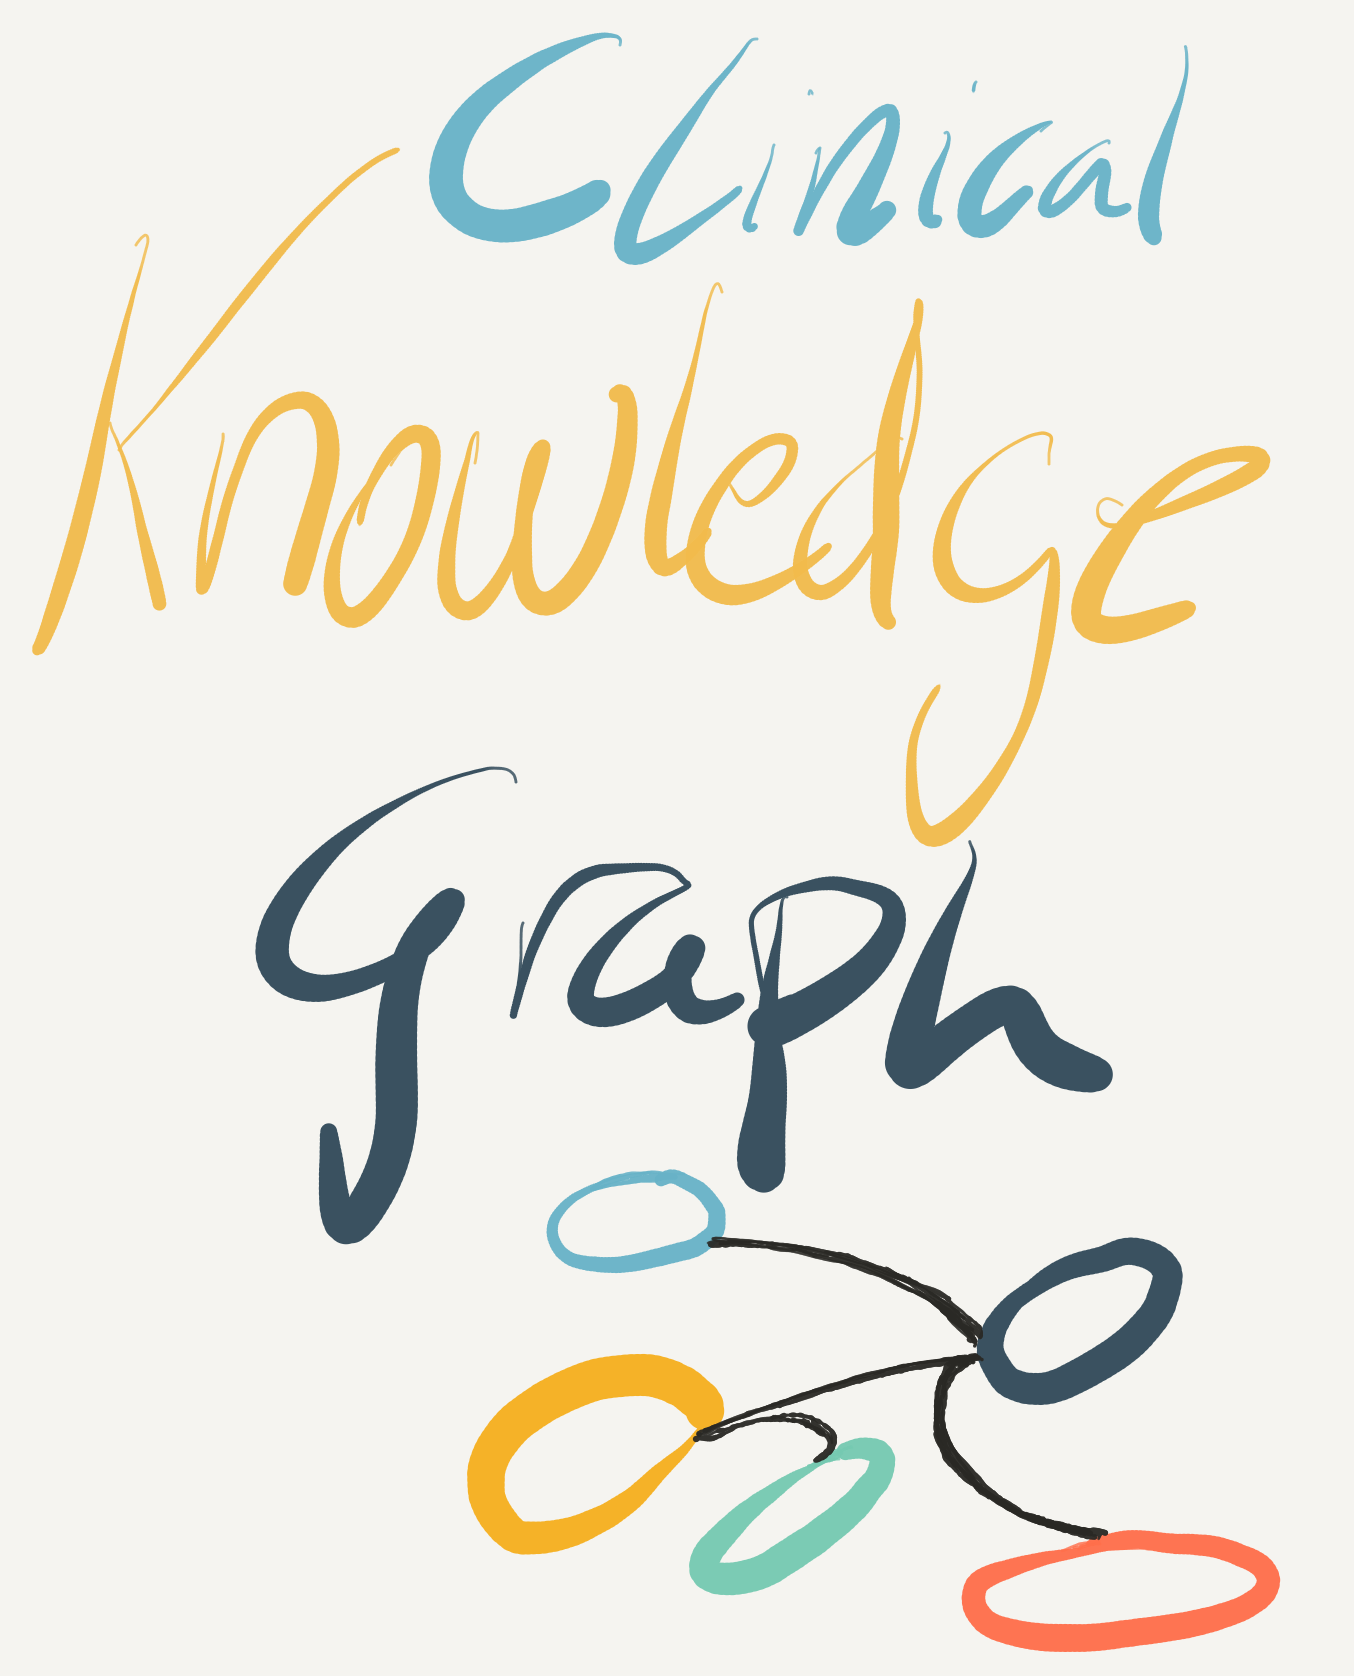 Clinical
Knowledge
Graph